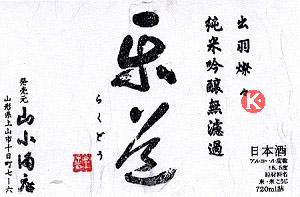 出羽燦々
純米吟醸無濾過
楽道
らくどう
日本酒
アルコール度数
15.5度
原材料名
米・米こうじ
720ml詰
発売元
山形県上山市十日町七ー六